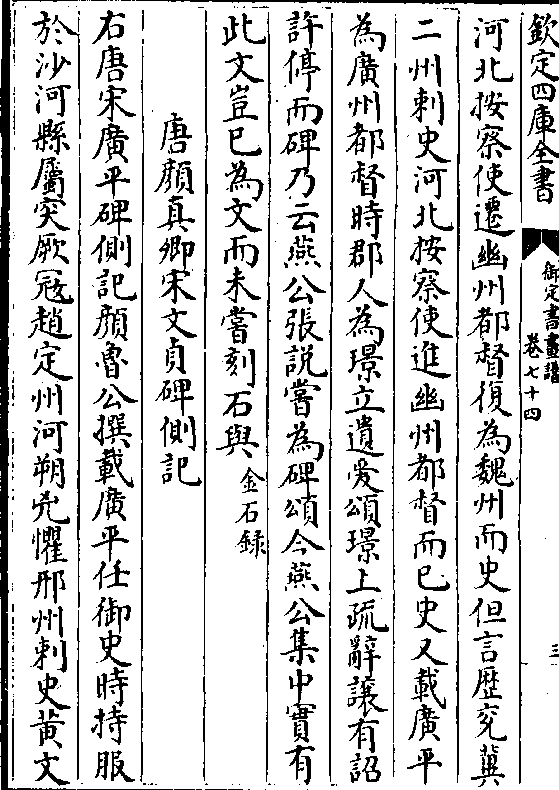 欽定四庫全書
御定書畫譜
卷七十四
三
河北按察使遷幽州都督復為魏州而史但言歷兖冀
二州刺史河北按察使進幽州都督而已史又載廣平
為廣州都督時郡人為璟立遺愛頌璟上疏辭讓有詔
許停而碑乃云燕公張説嘗為碑頌今燕公集中實有
此文豈已為文而未嘗刻石與金石録
唐顔真卿宋文貞碑側記
右唐宋廣平碑側記顔魯公撰載廣平任御史時持服
於沙河縣屬突厥冦趙定州河朔兇懼邢州刺史黄文